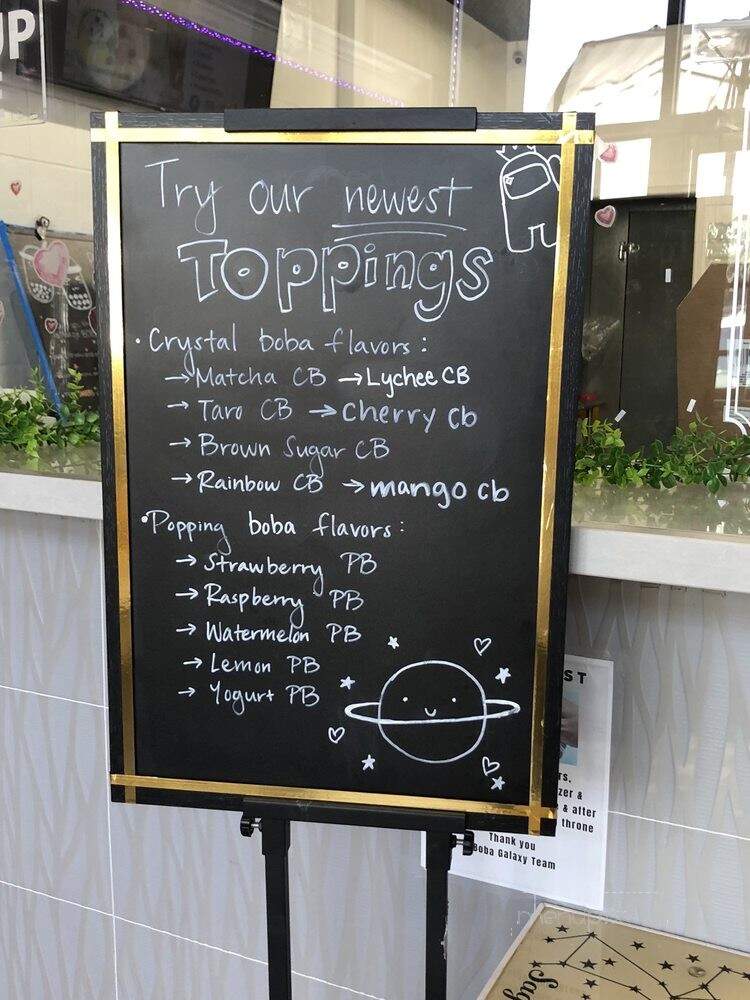 UP
Try our newest
Toppings
• Crystal boba flavors:
→ Matcha CB → Lychee CB
→ Taro CB → Cherry cb
→ Brown Sugar CB
→ Rainbow CB → mango cb
• Popping boba flavors:
→ Strawberry PB
→ Raspberry PB
→ Watermelon PB
→ Lemon PB
→ Yogurt PB
ST
rs,
zer &
& after
throne
Thank you
Boba Galaxy Team
Sag